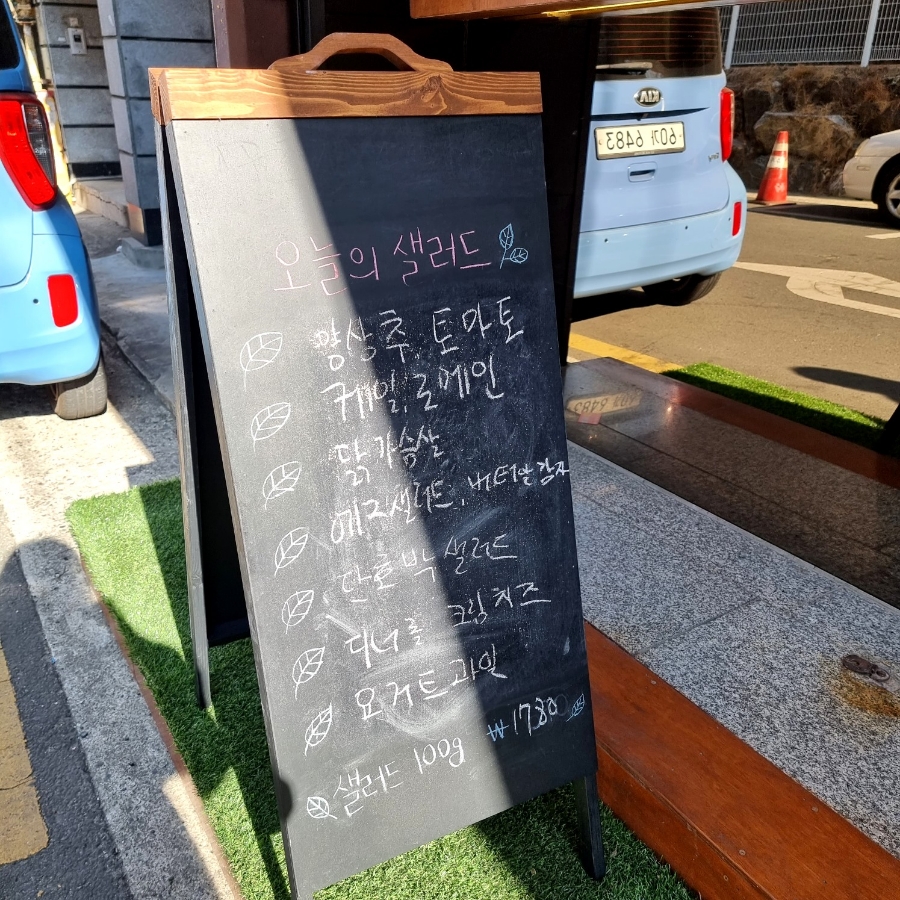 오늘의 샐러드
양상추, 토마토
케일, 로메인
닭가슴살
에그샐러드, 버터알감자
단호박 샐러드
디너롤 크림치즈
요거트 과일
샐러드 100g ₩1780
KIA
60가 6483